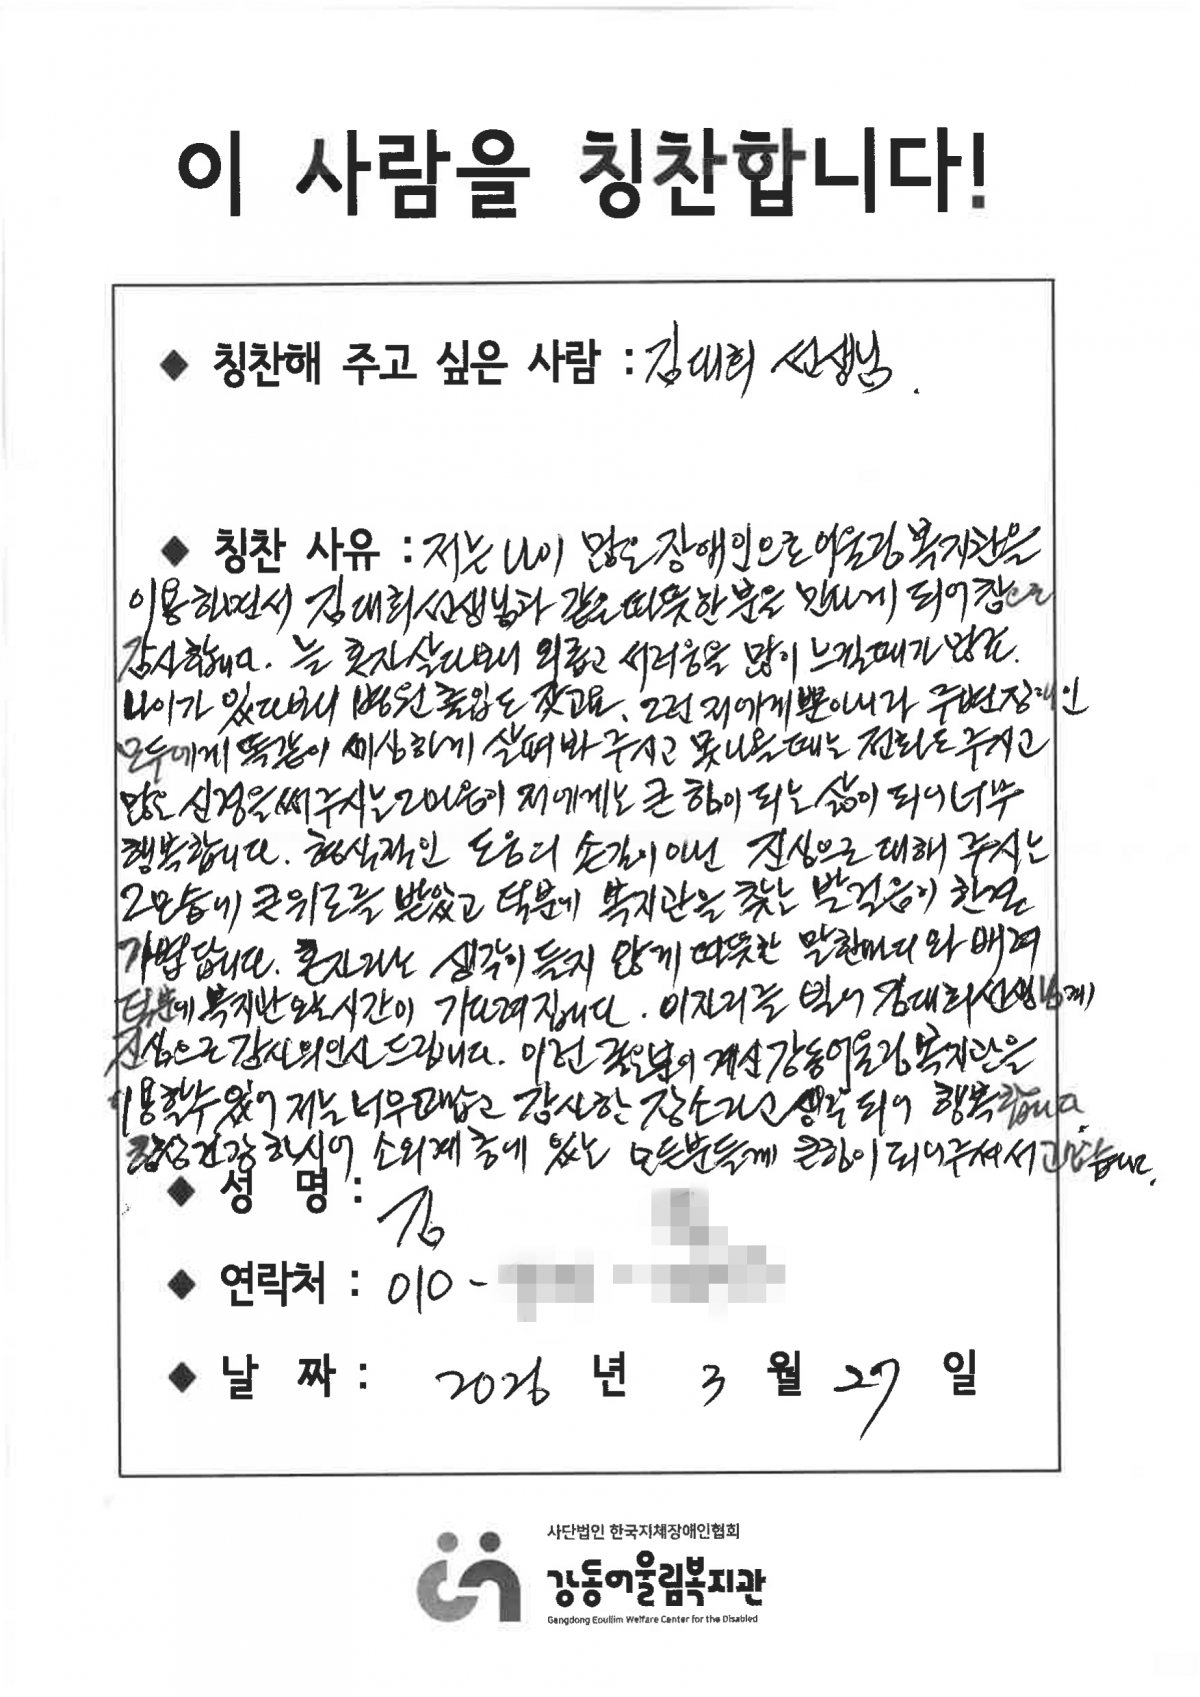 이 사람을 칭찬합니다!
◆ 칭찬해 주고 싶은 사람 : 김대희 선생님.
◆ 칭찬 사유 : 저는 나이 많은 장애인으로 어울림복지관을
이용하면서 김대희선생님과 같은 따뜻한 분을 만나게 되어 참으로
감사합니다. 늘 혼자살다보니 외롭고 서러움을 많이 느낄때가 많죠.
나이가 있다보니 병원출입도 잦고요. 그런 저에게 뿐아니라 주변장애인
모두에게 똑같이 세심하게 살펴봐 주시고 못나올때는 전화도 주시고
많은 신경을써주시는 그마음이 저에게는 큰 힘이 되는 삶이 되어 너무
행복합니다. 형식적인 도움의 손길이 아닌 진심으로 대해 주시는
그모습에 큰위로를 받았고 덕분에 복지관을 찾는 발걸음이 한결
가볍답니다. 혼자라는 생각이 들지 않게 따뜻한 말한마디와 배려
덕분에 복지관 오는시간이 기다려집니다. 이자리를 빌어 김대희선생님께
진심으로 감사의인사 드립니다. 이런 좋은분이 계신 강동어울림복지관을
이용할수 있어 저는 너무고맙고 감사한 장소라고 생각되어 행복합니다.
항상건강하시어 소외계층에 있는 모든분들께 큰힘이 되어주셔서 고맙습니다.
◆ 성 명 : 김
◆ 연락처 : 010-
◆ 날 짜 : 2026 년 3 월 27 일
사단법인 한국지체장애인협회
강동어울림복지관
Gangdong Eoullim Welfare Center for the Disabled